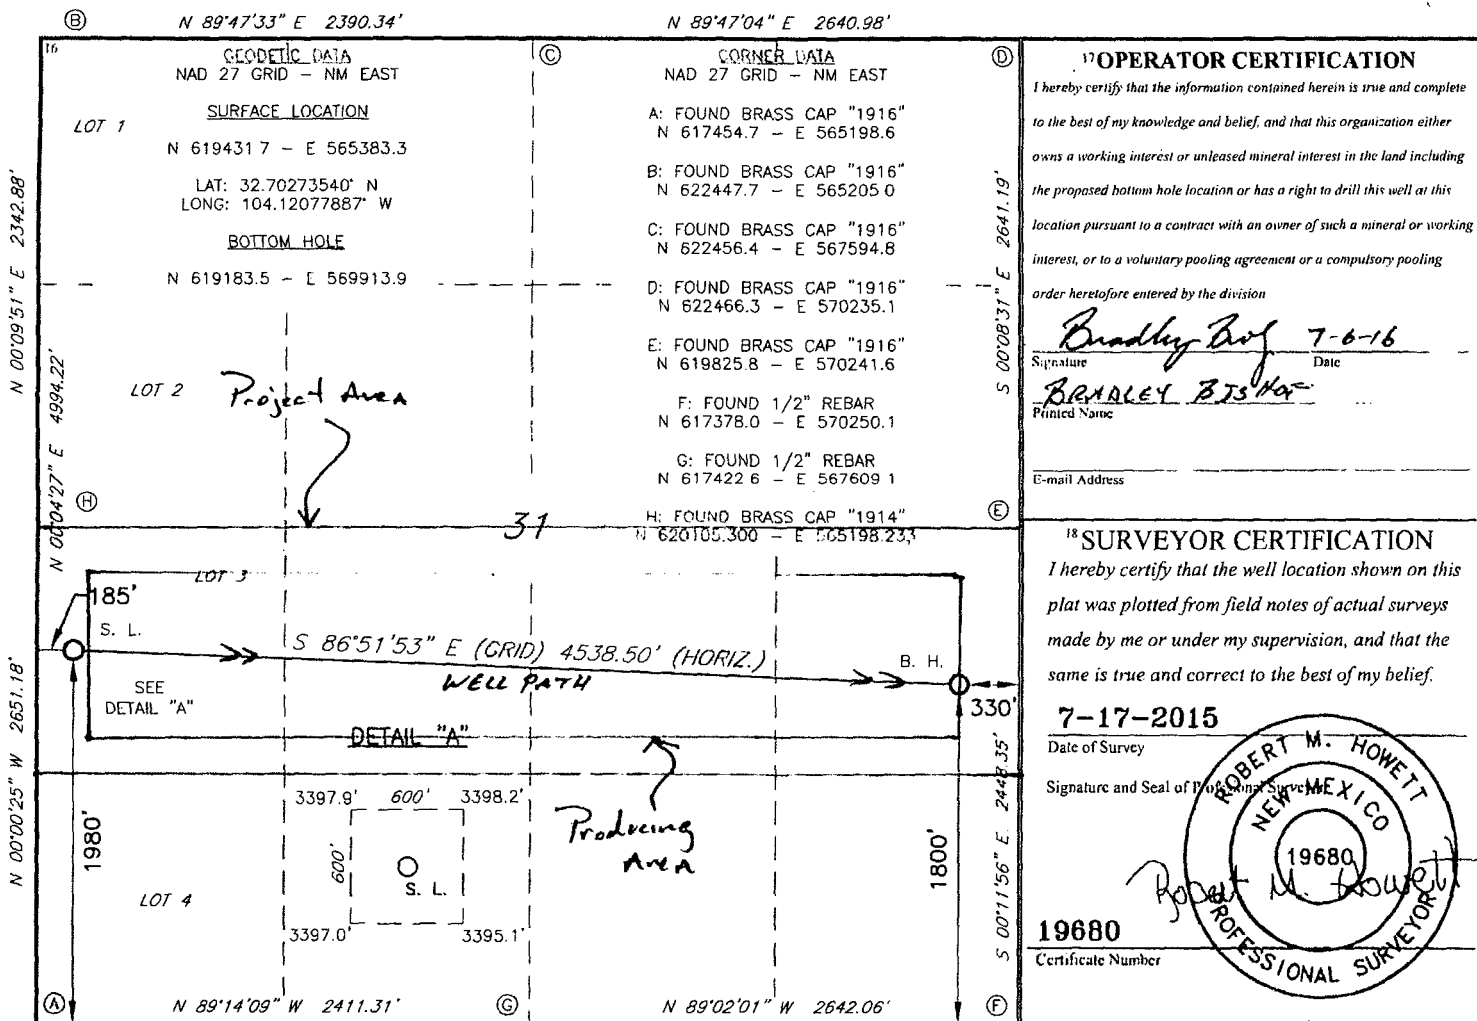 Ⓑ N 89°47'33" E 2390.34' N 89°47'04" E 2640.98'
16
GEODETIC DATA
NAD 27 GRID – NM EAST
SURFACE LOCATION
N 619431 7 – E 565383.3
LAT: 32.70273540° N
LONG: 104.12077887° W
BOTTOM HOLE
N 619183.5 – E 569913.9
Ⓒ
CORNER DATA
NAD 27 GRID – NM EAST
A: FOUND BRASS CAP "1916"
N 617454.7 – E 565198.6
B: FOUND BRASS CAP "1916"
N 622447.7 – E 565205 0
C: FOUND BRASS CAP "1916"
N 622456.4 – E 567594.8
D: FOUND BRASS CAP "1916"
N 622466.3 – E 570235.1
E: FOUND BRASS CAP "1916"
N 619825.8 – E 570241.6
F: FOUND 1/2" REBAR
N 617378.0 – E 570250.1
G: FOUND 1/2" REBAR
N 617422 6 – E 567609 1
H: FOUND BRASS CAP "1914"
N 620105.300 – E 565198.233
Ⓓ
LOT 1
N 00°09'51" E 2342.88'
S 00°08'31" E 2641.19'
LOT 2
Project Area
N 00°04'27" E 4994.22'
Ⓗ
31
Ⓔ
LOT 3
185'
S. L.
S 86°51'53" E (GRID) 4538.50' (HORIZ.)
WELL PATH
B. H.
330'
SEE
DETAIL "A"
DETAIL "A"
N 00°00'25" W 2651.18'
1980'
3397.9' 600' 3398.2'
600'
S. L.
3397.0' 3395.1'
Producing
Area
1800'
S 00°11'56" E 2448.35'
LOT 4
Ⓐ N 89°14'09" W 2411.31' Ⓖ N 89°02'01" W 2642.06' Ⓕ
17 OPERATOR CERTIFICATION
I hereby certify that the information contained herein is true and complete
to the best of my knowledge and belief, and that this organization either
owns a working interest or unleased mineral interest in the land including
the proposed bottom hole location or has a right to drill this well at this
location pursuant to a contract with an owner of such a mineral or working
interest, or to a voluntary pooling agreement or a compulsory pooling
order heretofore entered by the division
Bradley 7-6-16
Signature Date
BRADLEY
Printed Name
E-mail Address
18 SURVEYOR CERTIFICATION
I hereby certify that the well location shown on this
plat was plotted from field notes of actual surveys
made by me or under my supervision, and that the
same is true and correct to the best of my belief.
7-17-2015
Date of Survey
Signature and Seal of Professional Surveyor
ROBERT M. HOWETT
NEW MEXICO
19680
Robert M. Howett
PROFESSIONAL SURVEYOR
19680
Certificate Number